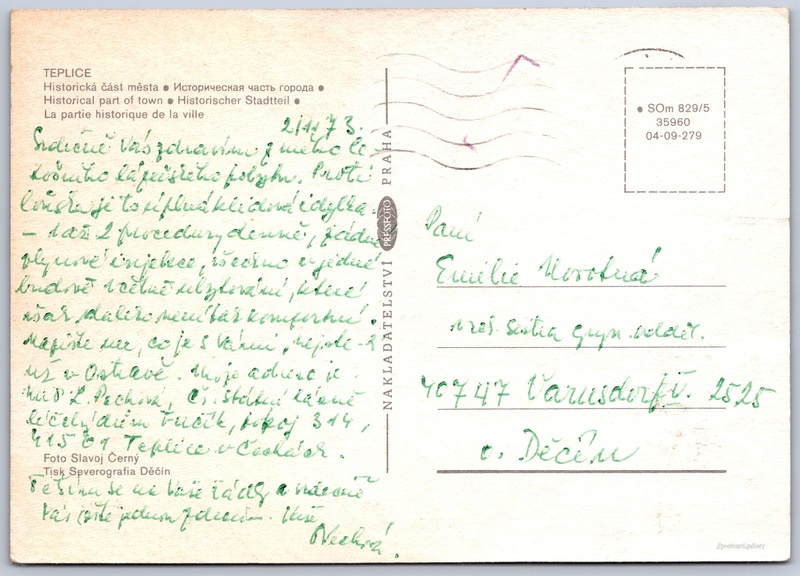 TEPLICE
Historická část města ● Историческая часть города ●
Historical part of town ● Historischer Stadtteil ●
La partie historique de la ville
2/11 73.
Srdečně Vás zdravím z mého le-
tošního lázeňského pobytu. Proti
loňsku je to úplná klidová idylka
– 1 až 2 procedury denně, žádné
plynové injekce, všechno v jedné
budově včetně ubytování, které
však daleko není tak komfortní.
Napište mi, co je s Vámi, nejste-li
už v Ostravě. Moje adresa je:
L. Pechová, Čs. státní lázně
léčebný dům Fučík, pokoj 314,
415 01 Teplice v Čechách.
Těším se na Vaše řádky a srdečně
Vás ještě jednou zdravím. Vaše
Pechová.
Foto Slavoj Černý
Tisk Severografia Děčín
NAKLADATELSTVÍ PRESSFOTO PRAHA
● SOm 829/5
35960
04-09-279
Paní
Emilie Novotná
sestra gyn. odděl.
40747 Varnsdorf V. 2525
o. Děčín
@postcard.gallery